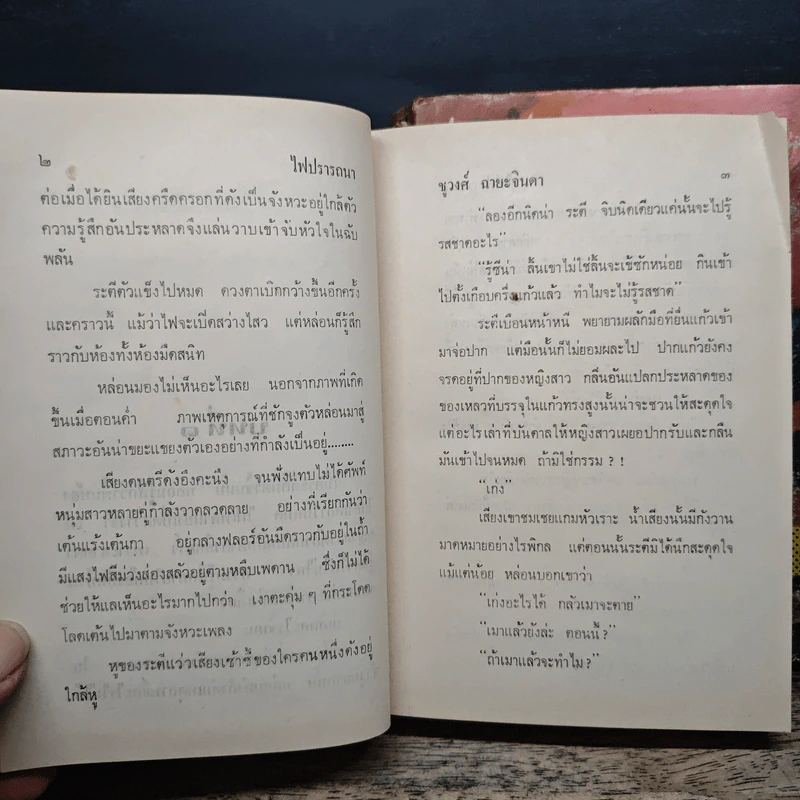 ๒
ไฟปรารถนา
ต่อเมื่อได้ยินเสียงครืดครอกที่ดังเป็นจังหวะอยู่ใกล้ตัว
ความรู้สึกอันประหลาดจึงแล่นวาบเข้าจับหัวใจในฉับ
พลัน
ระตีตัวแข็งไปหมด ดวงตาเบิกกว้างขึ้นอีกครั้ง
และคราวนี้ แม้ว่าไฟจะเปิดสว่างไสว แต่หล่อนก็รู้สึก
ราวกับห้องทั้งห้องมืดสนิท
หล่อนมองไม่เห็นอะไรเลย นอกจากภาพที่เกิด
ขึ้นเมื่อตอนค่ำ ภาพเหตุการณ์ที่ชักจูงตัวหล่อนมาสู่
สภาวะอันน่าขยะแขยงตัวเองอย่างที่กำลังเป็นอยู่........
เสียงดนตรีดังอึงคะนึง จนฟังแทบไม่ได้ศัพท์
หนุ่มสาวหลายคู่กำลังวาดลวดลาย อย่างที่เรียกกันว่า
เต้นแร้งเต้นกา อยู่กลางฟลอร์อันมืดราวกับอยู่ในถ้ำ
มีแสงไฟสีม่วงส่องสลัวอยู่ตามหลืบเพดาน ซึ่งก็ไม่ได้
ช่วยให้แลเห็นอะไรมากไปกว่า เงาตะคุ่ม ๆ ที่กระโดด
โลดเต้นไปมาตามจังหวะเพลง
หูของระตีแว่วเสียงเซ้าซี้ของใครคนหนึ่งดังอยู่
ใกล้หู
ชูวงศ์ ฉายะจินดา
๓
“ลองอีกนิดน่า ระตี จิบนิดเดียวแค่นั้นจะไปรู้
รสชาดอะไร”
“รู้ซีน่า ลิ้นเขาไม่ใช่ลิ้นจะเข้ซักหน่อย กินเข้า
ไปตั้งเกือบครึ่งแก้วแล้ว ทำไมจะไม่รู้รสชาด”
ระตีเบือนหน้าหนี พยายามผลักมือที่ยื่นแก้วเข้า
มาจ่อปาก แต่มือนั้นก็ไม่ยอมผละไป ปากแก้วยังคง
จรดอยู่ที่ปากของหญิงสาว กลิ่นอันแปลกประหลาดของ
ของเหลวที่บรรจุในแก้วทรงสูงนั้นน่าจะชวนให้สะดุดใจ
แต่อะไรเล่าที่บันดาลให้หญิงสาวเผยอปากรับและกลืน
มันเข้าไปจนหมด ถ้ามิใช่กรรม ? !
“เก่ง”
เสียงเขาชมเชยแกมหัวเราะ น้ำเสียงนั้นมีกังวาน
มาดหมายอย่างไรพิกล แต่ตอนนั้นระตีมิได้นึกสะดุดใจ
แม้แต่น้อย หล่อนบอกเขาว่า
“เก่งอะไรได้ กลัวเมาจะตาย”
“เมาแล้วยังล่ะ ตอนนี้ ?”
“ถ้าเมาแล้วจะทำไม ?”